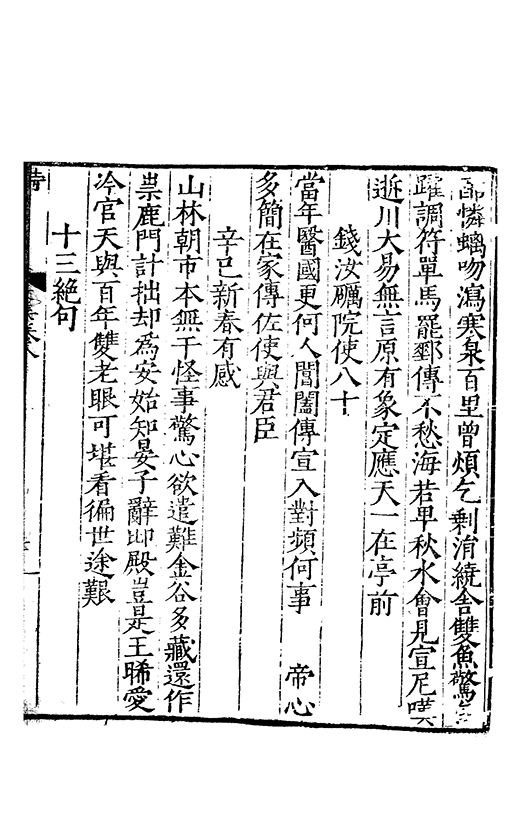 憐螭吻瀉寒泉百里曾煩乞剩涓繞舍雙魚驚
躍調符單馬罷郵傳不愁海若早秋水會見宣尼嘆
逝川大易無言原有象定應天一在亭前
錢汝礪院使八十
當年醫國更何人閶闔傳宣入對頻何事　帝心
多簡在家傳佐使與君臣
辛巳新春有感
山林朝市本無干怪事驚心欲遣難金谷多藏還作
祟鹿門計拙却為安始知晏子辭邶殿豈是王晞愛
冷官天與百年雙老眼可堪看徧世途艱
十三絕句